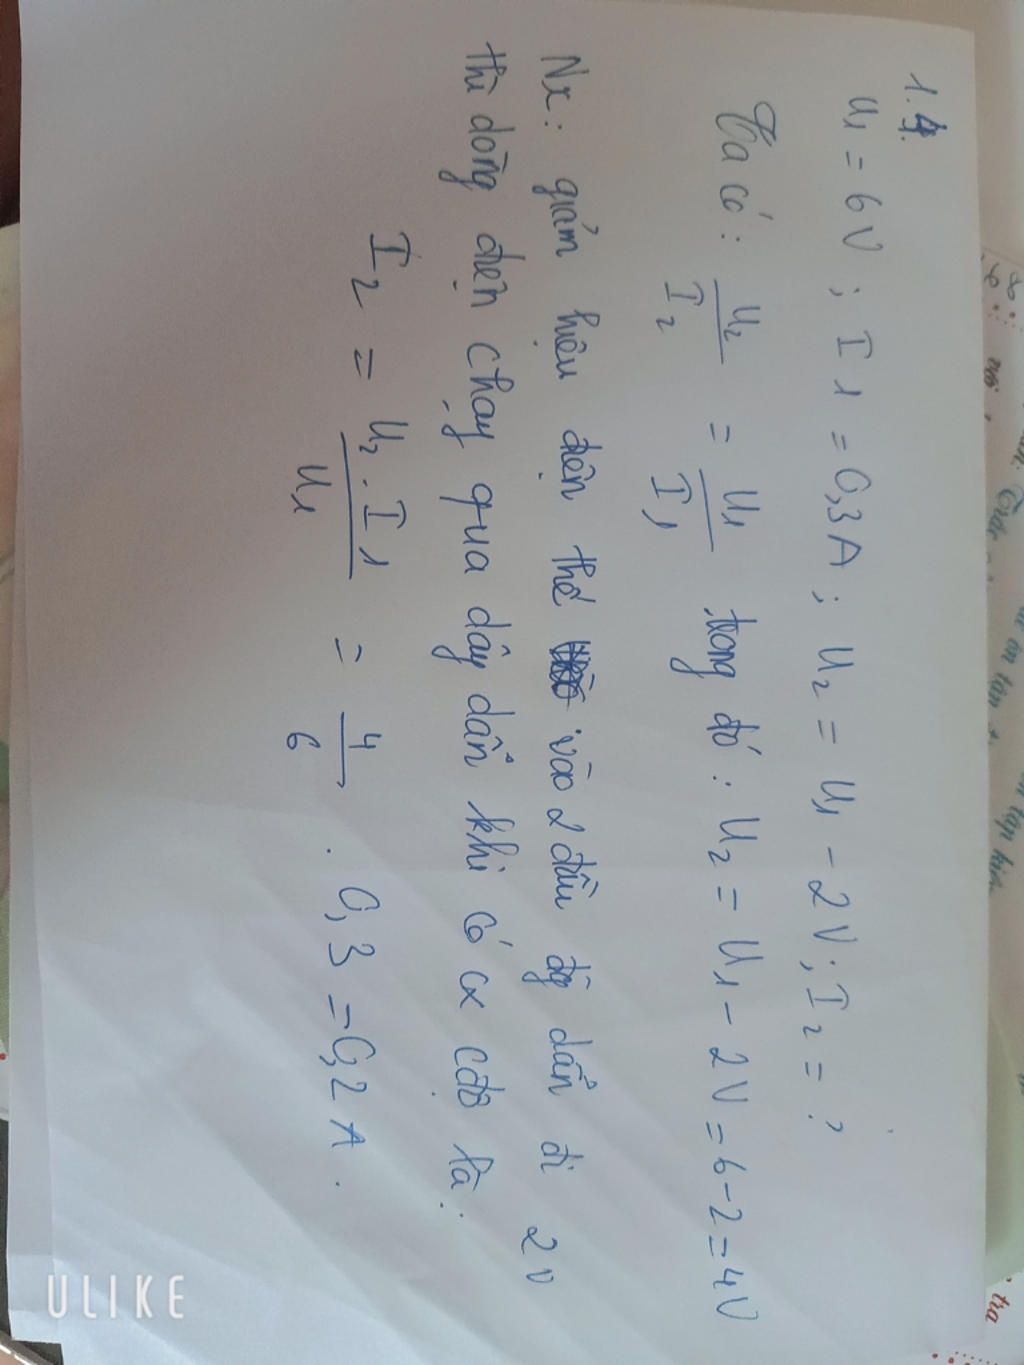 1.4.
U1 = 6V ; I1 = 0,3A ; U2 = U1 - 2V ; I2 = ?
Ta có : U2/I2 = U1/I1 trong đó : U2 = U1 - 2V = 6 - 2 = 4V
Nx : giảm hiệu điện thế vào 2 đầu dây dẫn đi 2V
thì dòng điện chạy qua dây dẫn khi có cđ là :
I2 = U2 . I1 / U1 = 4/6 . 0,3 = 0,2 A .
ULIKE